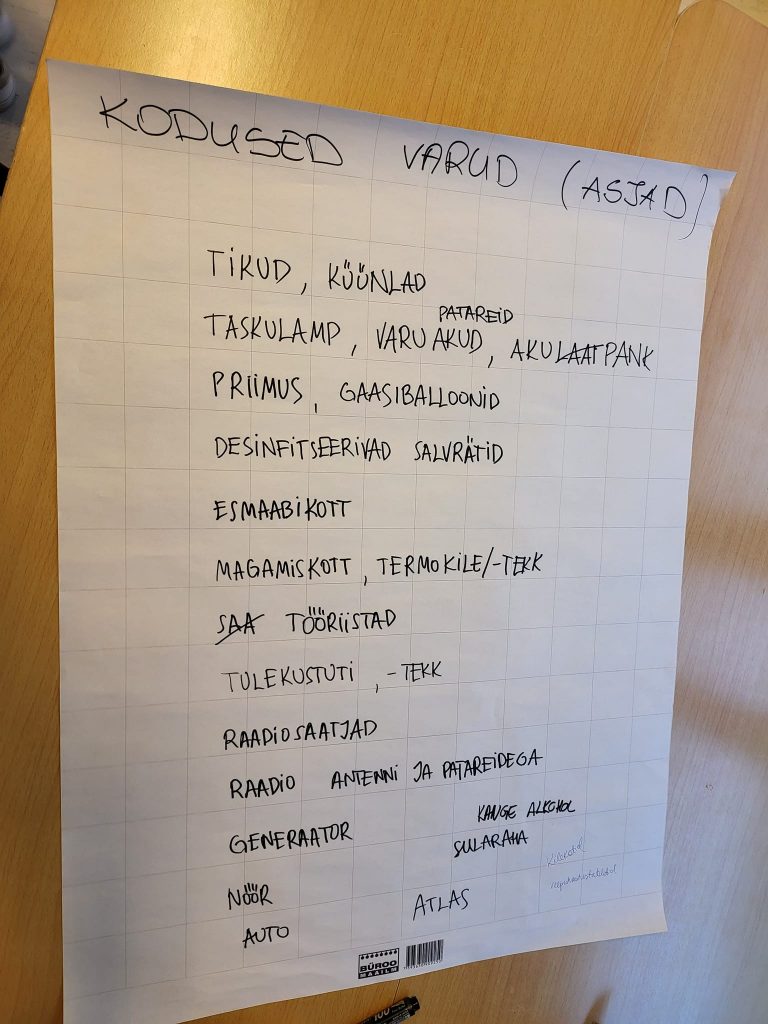 KODUSED VARUD (ASJAD)
TIKUD, KÜÜNLAD
PATAREID
TASKULAMP, VARUAKUD, AKULAATPANK
PRIIMUS, GAASIBALLOONID
DESINFITSEERIVAD SALVRÄTID
ESMAABIKOTT
MAGAMISKOTT, TERMOKILE/-TEKK
SAA TÖÖRIISTAD
TULEKUSTUTI, -TEKK
RAADIOSAATJAD
RAADIO ANTENNI JA PATAREIDEGA
GENERAATOR
KANGE ALKOHOL
SULARAHA
Kilekotid
NÖÖR
AUTO
ATLAS
BÜROO
MAAILM
100